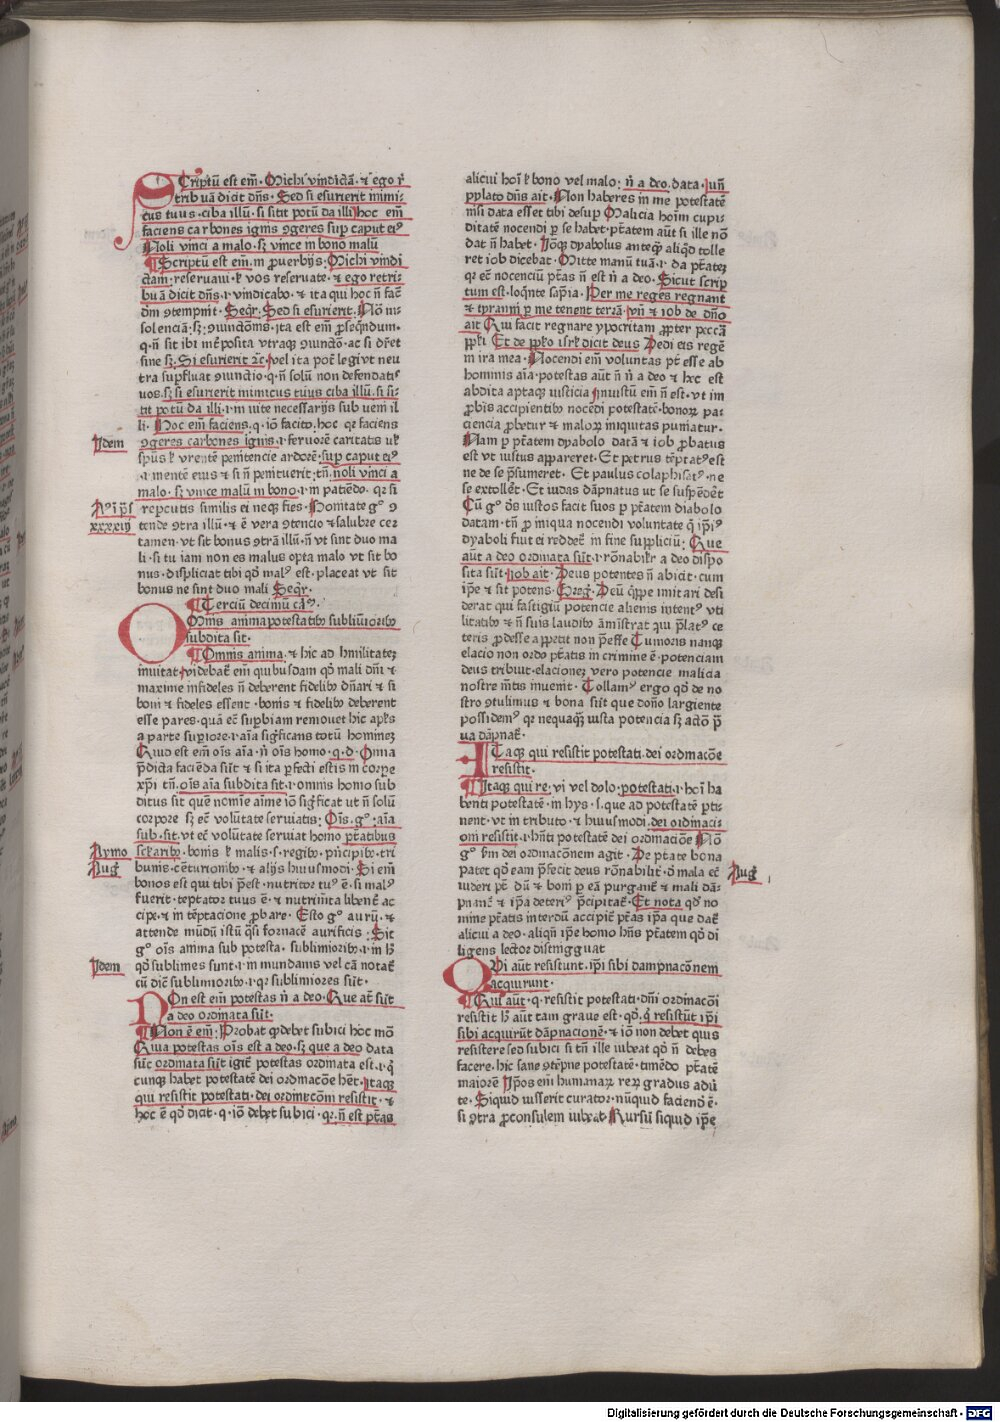 Scriptū est em̄· Michi vindictā· ⁊ ego r̄
tribuā dicit dn̄s· Sed si esurierit inimi-
cus tuus· ciba illū· si sitit potū da illi hoc em̄
faciens carbones ignis ꝯgeres sup̄ caput ei⁹
Noli vinci a malo· sꝫ vince in bono malū
Scriptū est em̄· in ꝓuerbijs· Michi vindi
ctam· reseruaui· ⁊ vos reseruate· ⁊ ego retri-
buā dicit dn̄s· i· vindicabo· ⁊ ita qui hoc n̄ fac̄
dm̄ ꝯtempnit· Seqr̄· Sed si esurierit· Nō in-
solenciā· sꝫ· ꝯiunctōnis· ita est em̄ ꝓsequēdum·
q· n̄ sit ibi interposita vtraqꝫ ꝯiunctō· ac si dr̄et
sine sꝫ· Si esurierit ⁊c̄· vel ita pōt legi vt neu
tra supfluat ꝯiunctio· q· n̄ solū non defendatis
vos· sꝫ si esurierit inimicus tuus ciba illū· si si-
tit potū da illi· i· in vite necessarijs subueni il
li· Hoc em̄ faciens· q· iō facito· hoc qr faciens
Idem
ꝯgeres carbones ignis· i· feruorē caritatis ul̄
sp̄us ⁊ vrentē penitencie ardorē· sup caput ei⁹
i· mentē eius ⁊ si n̄ penituerit· tn̄· noli vinci a
malo· sꝫ vince malū in bono· i· in patiēdo· qr si
repcutis similis ei neqꝫ fies· Bonitate g⁰ ꝯ
xxxxiij
tende ꝯtra illū· ⁊ ē vera ꝯtencio ⁊ salubre cer
tamen· vt sit bonus ꝯtrā illū· n̄ vt sint duo ma
li· si tu iam non es malus opta malo vt sit bo
nus· displiciat tibi qd̄ mal⁹ est· placeat vt sit
bonus ne sint duo mali Seqr̄·
Terciū decimū cā⁹·
Omnis anima potestatibꝫ sublimioribꝫ
subdita sit·
Omnis anima· ⁊ hic ad humilitateꝫ
inuitat· videbat̄ em̄ quibusdam qd̄ mali dn̄i ⁊
maxime infideles n̄ deberent fidelibꝫ dn̄ari ⁊ si
boni ⁊ fideles essent· bonis ⁊ fidelibꝫ deberent
esse pares· quā ec̄ supbiam remouet hic apl̄us
a parte supiore· i· aīa significans totū hominem
Quid est em̄ oīs aīa· n̄ oīs homo· q·d· Omnia
p̄dicta facienda sūt ⁊ si ita pfecti estis in corpe
xp̄i tn̄· oīs aīa subdita sit· i· omnis homo sub
ditus sit que nomīe aīme iō significat ut n̄ solū
corpore sꝫ ec̄ volūtate seruiatis· Oīs· g⁰· aīa
sub· sit· vt ec̄ volūtate seruiat homo ptātibus
Aymo
sclarībꝫ· bonis ⁊ malis· s· regibꝫ· pncipibꝫ· tri
Aug⁹
bunis· cēturionibꝫ· ⁊ alijs huiusmodi· Si em̄
bonus est qui tibi p̄est· nutritor tu⁹ ē· si mal⁹
fuerit· tēptator tuus ē· ⁊ nutrimta libent̄ ac
cipe· ⁊ in tēptacione pbare· Esto g⁰ aurū· ⁊
attende mūdū istū qsi fornacē aurificis· Sit
g⁰ oīs anima sub potesta· sublimioribꝫ· i· in hͦ
Idem
qd̄ sublimes sunt· i· in mundanis vel cā notat̄
cū dic̄ sublimioribꝫ· i· qꝛ sublimiores sūt·
Non est em̄ potestas n̄ a deo· Que at̄ sūt
a deo ordinata sūt·
Non ē em̄· Probat ꝙ debet subici hoc mō
Quia potestas oīs est a deo· sꝫ que a deo data
sūt ordinata sūt igit̄ potestas ordinata est· i· q
cunqꝫ habet potestatē dei ordinacōne het̄· Itaqꝫ
qui resistit potestati· dei ordinacōni resistit· ⁊
hoc ē qd̄ dicit· q· iō debet subici· qꝛ· n̄ est ptās
alicui hoī ⁊ bono vel malo· n̄ a deo· data· vn̄
ppilato dn̄s ait· Non haberes in me potestatē
nisi data esset tibi desup Malicia hoīm cupi
ditatē nocendi p se habet· ptātem aūt si ille nō
dat n̄ habet· Iōqꝫ dyabolus anteqꝫ aliqd tolle
ret iob dicebat· Mitte manū tuā· i· da ptāteꝫ
qꝛ ec̄ nocenciū ptās n̄ est n̄ a deo· Sicut scrip
tum est· loqnte sapīa· Per me reges regnant
⁊ tyranni p me tenent terrā· vn̄ ⁊ iob de dn̄o
ait Qui facit regnare ypocritam ppter pccā
ppli Et de pplo isrl dicit deus Dedi eis regē
in ira mea· Nocendi em̄ voluntas pt̄ esse ab
hominis aīa· potestas aūt n̄ n̄ a deo ⁊ hec est
abdita aptaqꝫ iusticia iniustū em̄ n̄ est· vt im
pbis accipientibꝫ nocēdi potestatē· bonoꝝ pa-
ciencia pbetur ⁊ maloꝝ iniquitas puniatur·
Nam p ptātem dyabolo datā ⁊ iob pbatus
est vt iustus appareret· Et petrus tēptat⁹ est
ne de se p̄sumeret· Et paulus colaphisat⁹· ne
se extollet̄· Et iudas dāpnatus ut se suspēdēt
Cū g⁰ oēs iustos facit suos p ptātem diabolo
datam· tn̄ p iniqua nocendi voluntate q ip̄i⁹
dyaboli fuit ei reddet̄ in fine suppliciū· Que
aūt a deo ordinata sūt· i· rōnabilr a deo dispo
sita sūt· iob ait· Deus potentes n̄ abicit· cum
ip̄e ⁊ sit potens· Greg⁹· Deū qippe imitari desi
derat qui fastigiū potencie alienis intent⁹ vti
litatibꝫ ⁊ n̄ suis laudibꝫ āministrat qui p̄lat⁹ ce
teris pdesse appetit non p̄esse Tumoris nanqꝫ
elacio non ordo ptātis in crimine ē· potenciam
deus tribuit· elacioneꝫ vero potencie malicia
nostre mtis inuenit· Tollam⁹ ergo qd̄ de no
stro ꝯtulimus ⁊ bona sūt que dono largiente
possidem⁹ qꝛ nequaqꝫ iusta potencia sꝫ actō p̄
ua dāpnat̄·
Itaqꝫ qui resistit potestati· dei ordinacōe
resistit·
Itaqꝫ qui re· vi vel dolo· potestati· i· hoī ha
benti potestatē· in hijs· s· que ad potestatē pti-
nent· vt in tributo· ⁊ huiusmodi· dei ordinaci-
oni resistit· i· hn̄ti potestatē dei ordinaciōe Nō
g⁰ scdm dei ordinacōnem agit· De ptāte bona
Aug⁹
patet qd̄ eam p̄fecit deus rōnabilit̄· d̄ mala ec̄
uideri pt̄ dū ⁊ boni p eā purgant̄ ⁊ mali dā-
pnant̄ ⁊ ip̄a deteri⁹ p̄cipitat̄· Et nota qd̄ no
mine ptātis interdū accipit̄ ptās ip̄a que dat̄
alicui a deo· aliqn̄ ip̄e homo hn̄s ptātem qd̄ di
ligens lector distingguat
Qui aūt resistunt· ip̄i sibi dampnacōnem
acquirunt·
Qui aūt· q· resistit potestati· dn̄i ordinacōi
resistit hͦ aūt tam graue est· qd̄· q resistūt ip̄i
sibi acquirūt dāpnacionē· ⁊ iō non debet quis
resistere sed subici si tn̄ ille iubeat qd̄ n̄ debes
facere· hic sane ꝯtēpne potestatē· timēdo ptātē
maiorē Ip̄os em̄ humanaꝝ reꝝ gradus adū
te· Siquid iusserit curator· nūquid faciend ē·
si ꝯtra pconsulem iubeat· Rursū siquid ip̄e